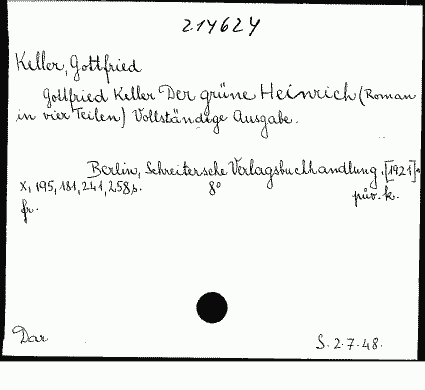 214624
Keller, Gottfried
Gottfried Keller Der grüne Heinrich (Roman
in vier Teilen) Vollständige Ausgabe.
Berlin, Schreitersche Verlagsbuchhandlung, [1921].
X, 195, 181, 241, 258 s. 8° pův. k.
fr.
Dar S. 2.7.48.